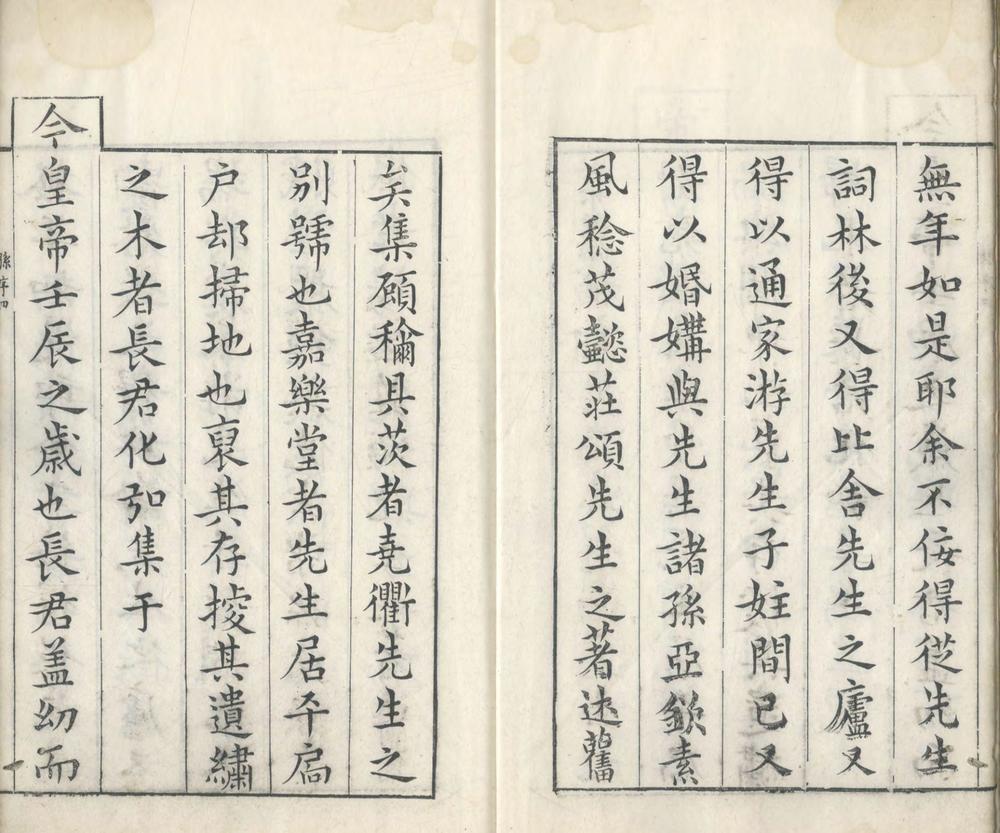 無年如是耶余不佞得從先生
詞林後又得比舍先生之廬又
得以通家游先生子姓間已又
得以婚媾與先生諸孫亞欽素
風稔茂懿莊頌先生之著述舊
矣集顔稱具茨者堯衢先生之
別號也嘉樂堂者先生居平扃
户却掃地也裒其存掞其遺繡
之木者長君化弘集于
今皇帝壬辰之歲也長君盖幼而